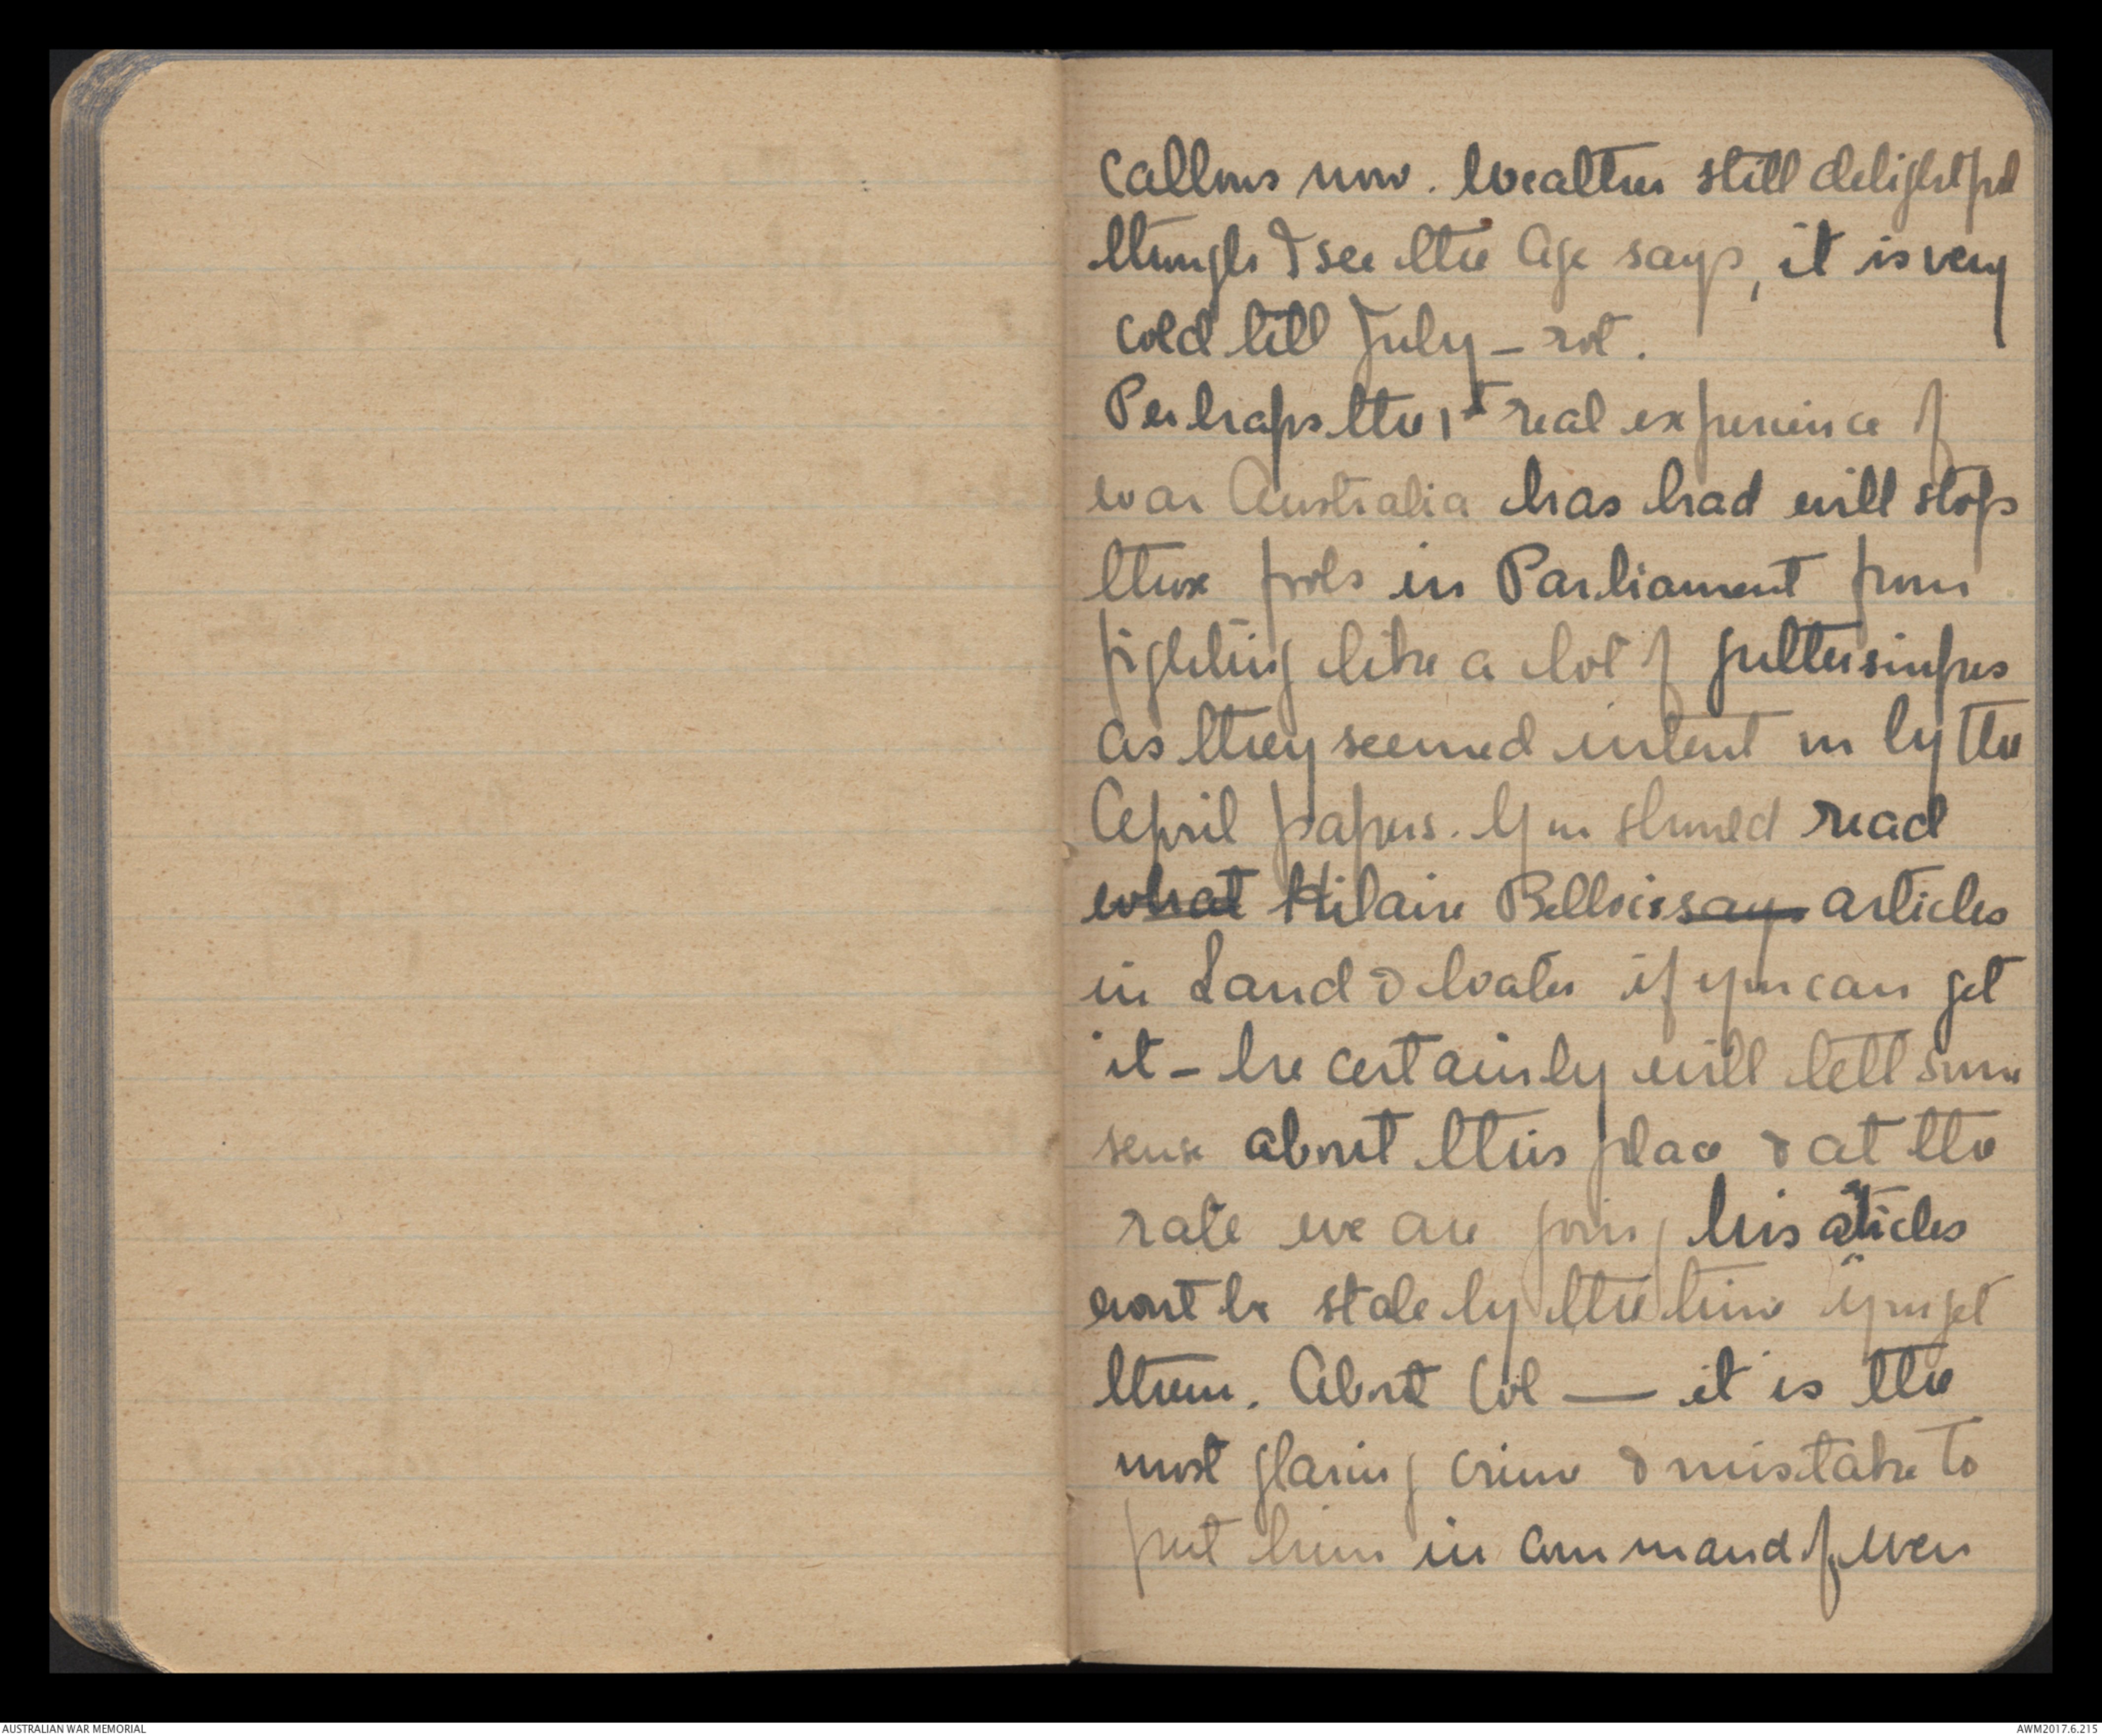 callous now. Weather still delightful
though I see the Age says, it is very
cold till July – rot.
Perhaps the 1st real experience of
war Australia has had will stop
those fools in Parliament from
fighting like a lot of guttersnipes
as they seemed intent on by the
April papers. You should read
what Hilaire Bellocs says articles
in Land & Water if you can get
it – he certainly will tell some
sense about this place & at the
rate we are going his articles
wont be stale by the time you get
them. About Col — it is the
most glaring crime & mistake to
put him in command of even
AUSTRALIAN WAR MEMORIAL
AWM2017.6.215